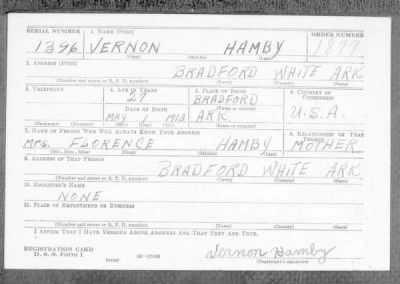 SERIAL NUMBER 1. NAME (Print) ORDER NUMBER
1396 VERNON HAMBY 1879
(First) (Middle) (Last)
2. ADDRESS (Print)
BRADFORD WHITE ARK
(Number and street or R. F. D. number) (Town) (County) (State)
3. TELEPHONE 4. AGE IN YEARS 5. PLACE OF BIRTH 6. COUNTRY OF CITIZENSHIP
27 BRADFORD
DATE OF BIRTH (Town or county)
MAY 1 1913 ARK U.S.A.
(Exchange) (Number) (Mo.) (Day) (Yr.) (State or country)
7. NAME OF PERSON WHO WILL ALWAYS KNOW YOUR ADDRESS 8. RELATIONSHIP OF THAT PERSON
Mrs. FLORENCE HAMBY MOTHER
(Mr., Mrs., Miss) (First) (Middle) (Last)
9. ADDRESS OF THAT PERSON
BRADFORD WHITE ARK
(Number and street or R. F. D. number) (Town) (County) (State)
10. EMPLOYER'S NAME
NONE
11. PLACE OF EMPLOYMENT OR BUSINESS
(Number and street or R. F. D. number) (Town) (County) (State)
I AFFIRM THAT I HAVE VERIFIED ABOVE ANSWERS AND THAT THEY ARE TRUE.
REGISTRATION CARD Vernon Hamby
D. S. S. FORM 1 (over) (Registrant's signature)